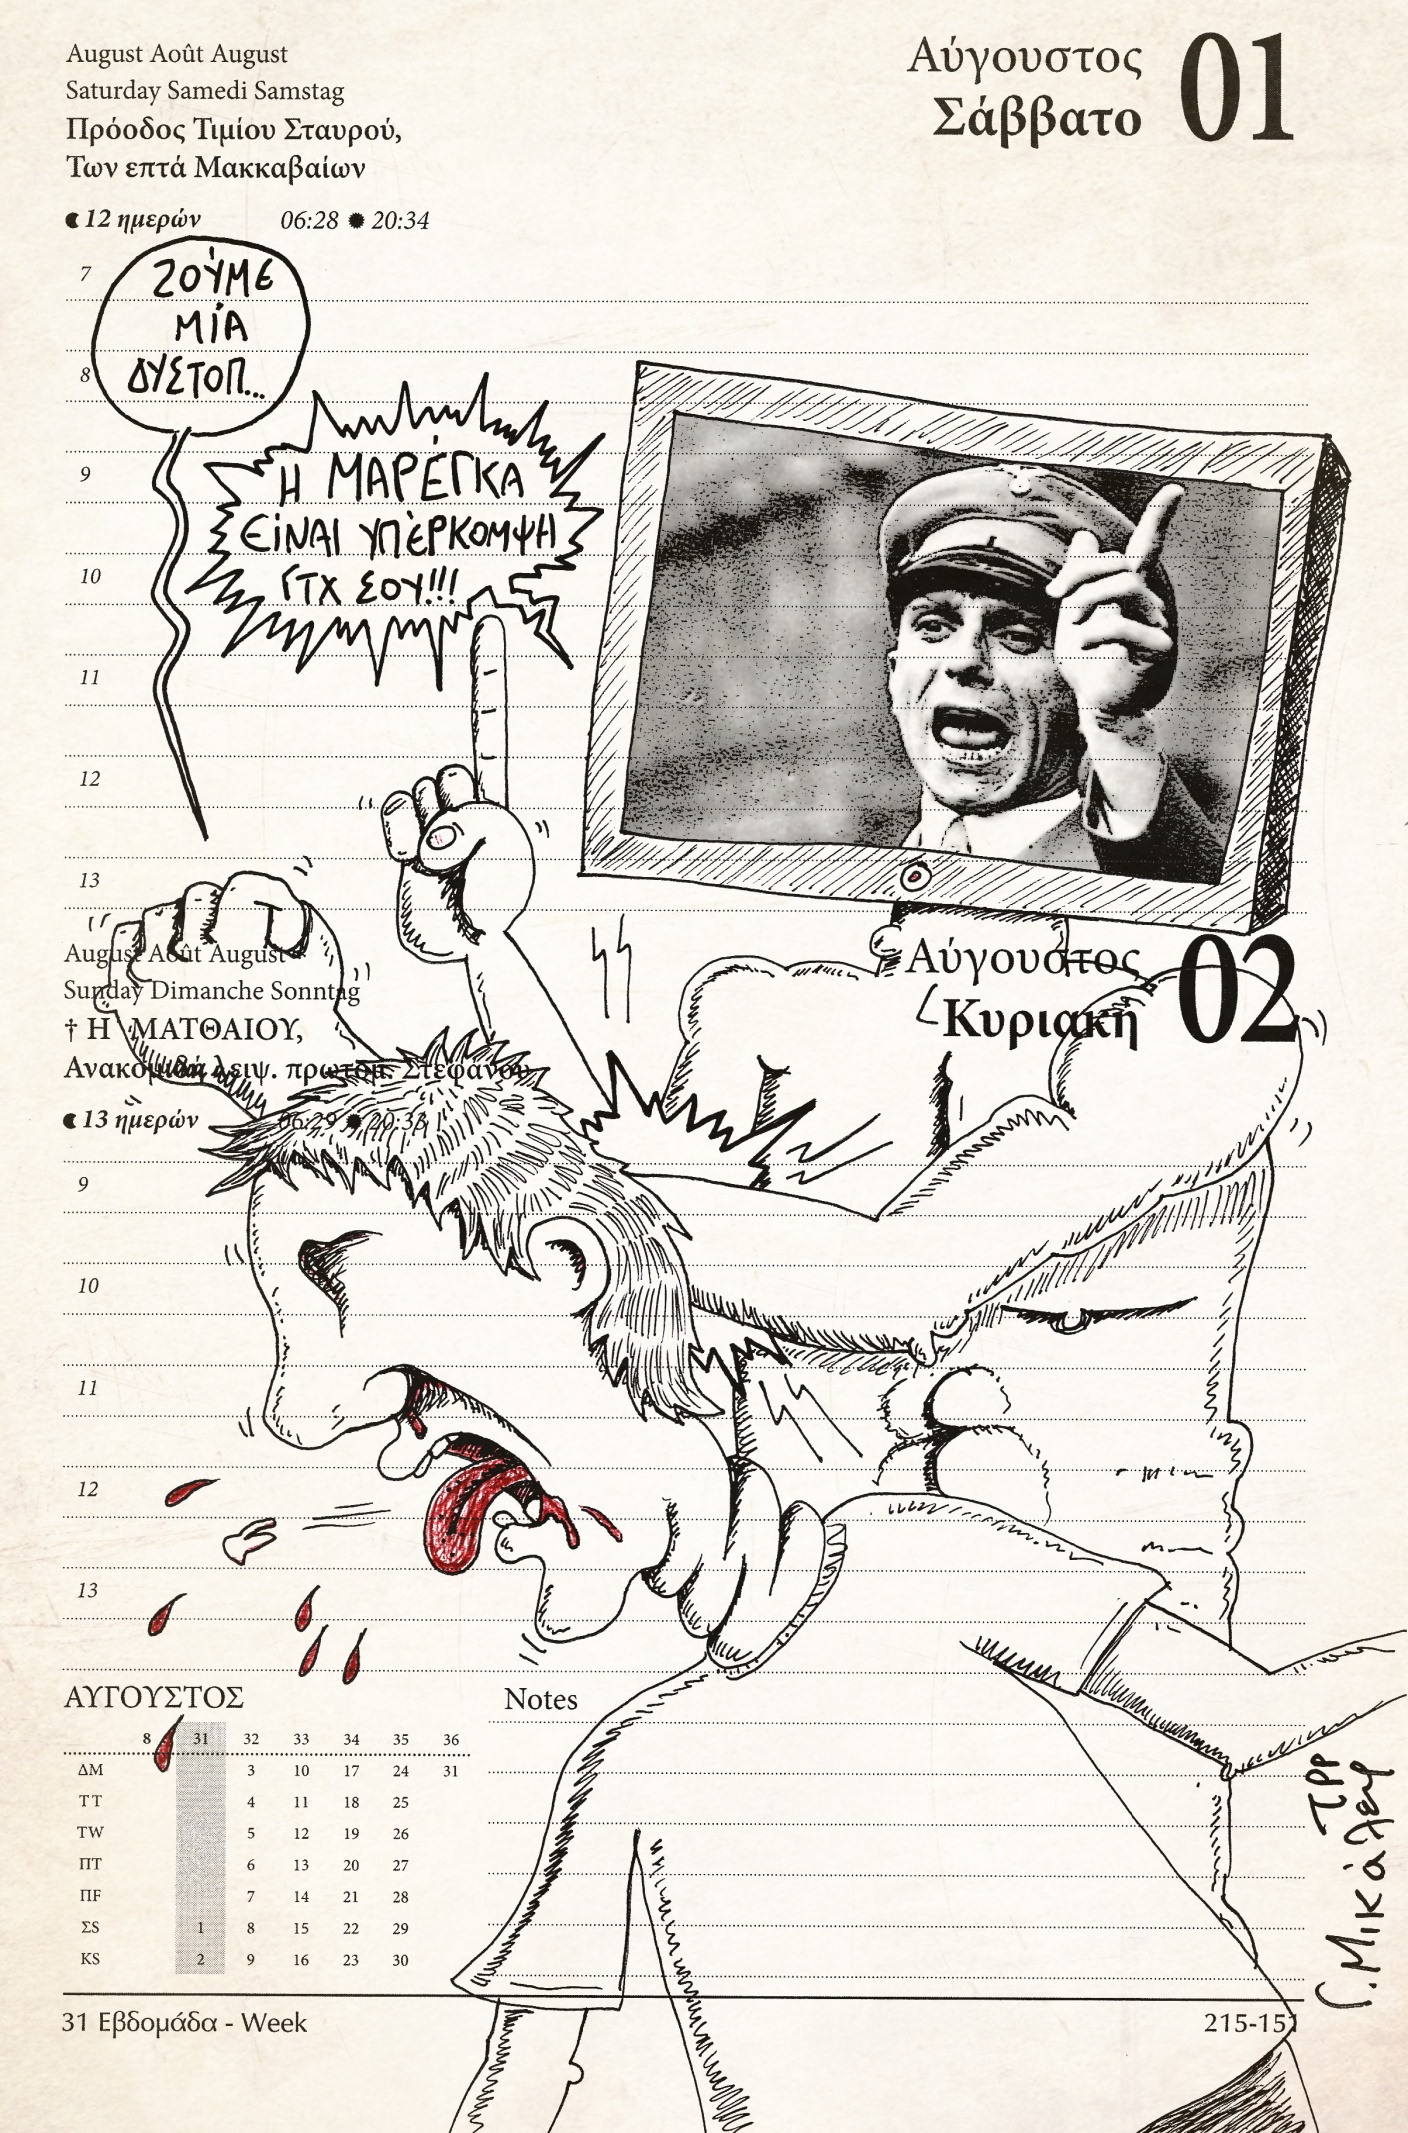 August Août August
Saturday Samedi Samstag
Πρόοδος Τιμίου Σταυρού,
Των επτά Μακκαβαίων
12 ημερών 06:28 20:34
Αύγουστος
Σάββατο
01
7
8
9
10
11
12
13
ΖΟΎΜΕ
ΜΊΑ
ΔΥΣΤΟΠ...
Η ΜΑΡΈΓΚΑ
ΕΊΝΑΙ ΥΠΈΡΚΟΜΨΗ
ΓΤΧ ΣΟΥ!!!
August Août August
Sunday Dimanche Sonntag
† Η΄ ΜΑΤΘΑΙΟΥ,
Ανακομιδή λειψ. πρωτομ. Στεφάνου
13 ημερών 06:29 20:33
Αύγουστος
Κυριακή
02
9
10
11
12
13
ΑΥΓΟΥΣΤΟΣ
8 31 32 33 34 35 36
ΔΜ 3 10 17 24 31
ΤΤ 4 11 18 25
ΤW 5 12 19 26
ΠΤ 6 13 20 27
ΠF 7 14 21 28
ΣS 1 8 15 22 29
KS 2 9 16 23 30
Notes
31 Εβδομάδα - Week
215-151
Γ. Μικάλεφ